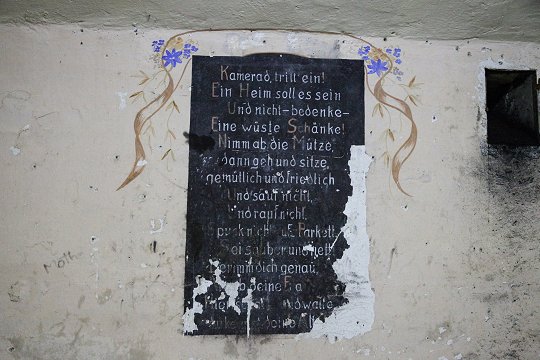 Kamerad, tritt ein!
Ein Heim soll es sein
Und nicht-bedenke-
Eine wüste Schänke!
Nimm ab die Mütze,
Dann geh und sitze,
gemütlich und friedlich
Und sauf nicht,
Und rauf nicht,
Spuck nicht auf's Parkett,
Sei sauber und nett
genau,
deine